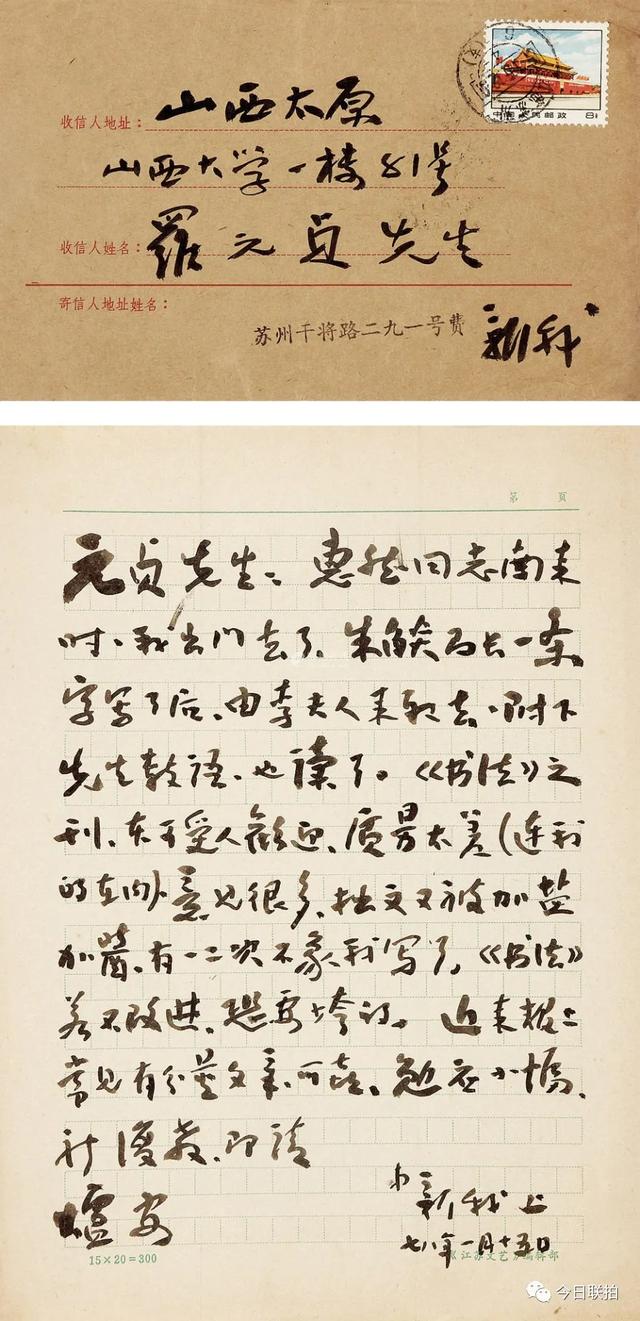 中国人民邮政 8分
收信人地址: 山西太原
山西大学一楼81号
收信人姓名: 羅元贞先生
寄信人地址姓名:
苏州干将路二九一号费 新我
第 页
元贞先生：惠然同志南来
时、我出门去了、朱焰局长一条
字写了后、由李夫人来取去、附下
先生教语、也读了。《书法》之
刊、本可受人歡迎、质量太差（连我
的在内）意见很多、拙文又被加盐
加醬、有一二次不象我写了、《书法》
若不改进、恐要垮许。近来报上
常见有分量文章、可喜、勉应小幅、
即请
爐安
弟 新我 上
七八年一月十五日
15×20=300
《江苏文艺》编辑部
今日联拍